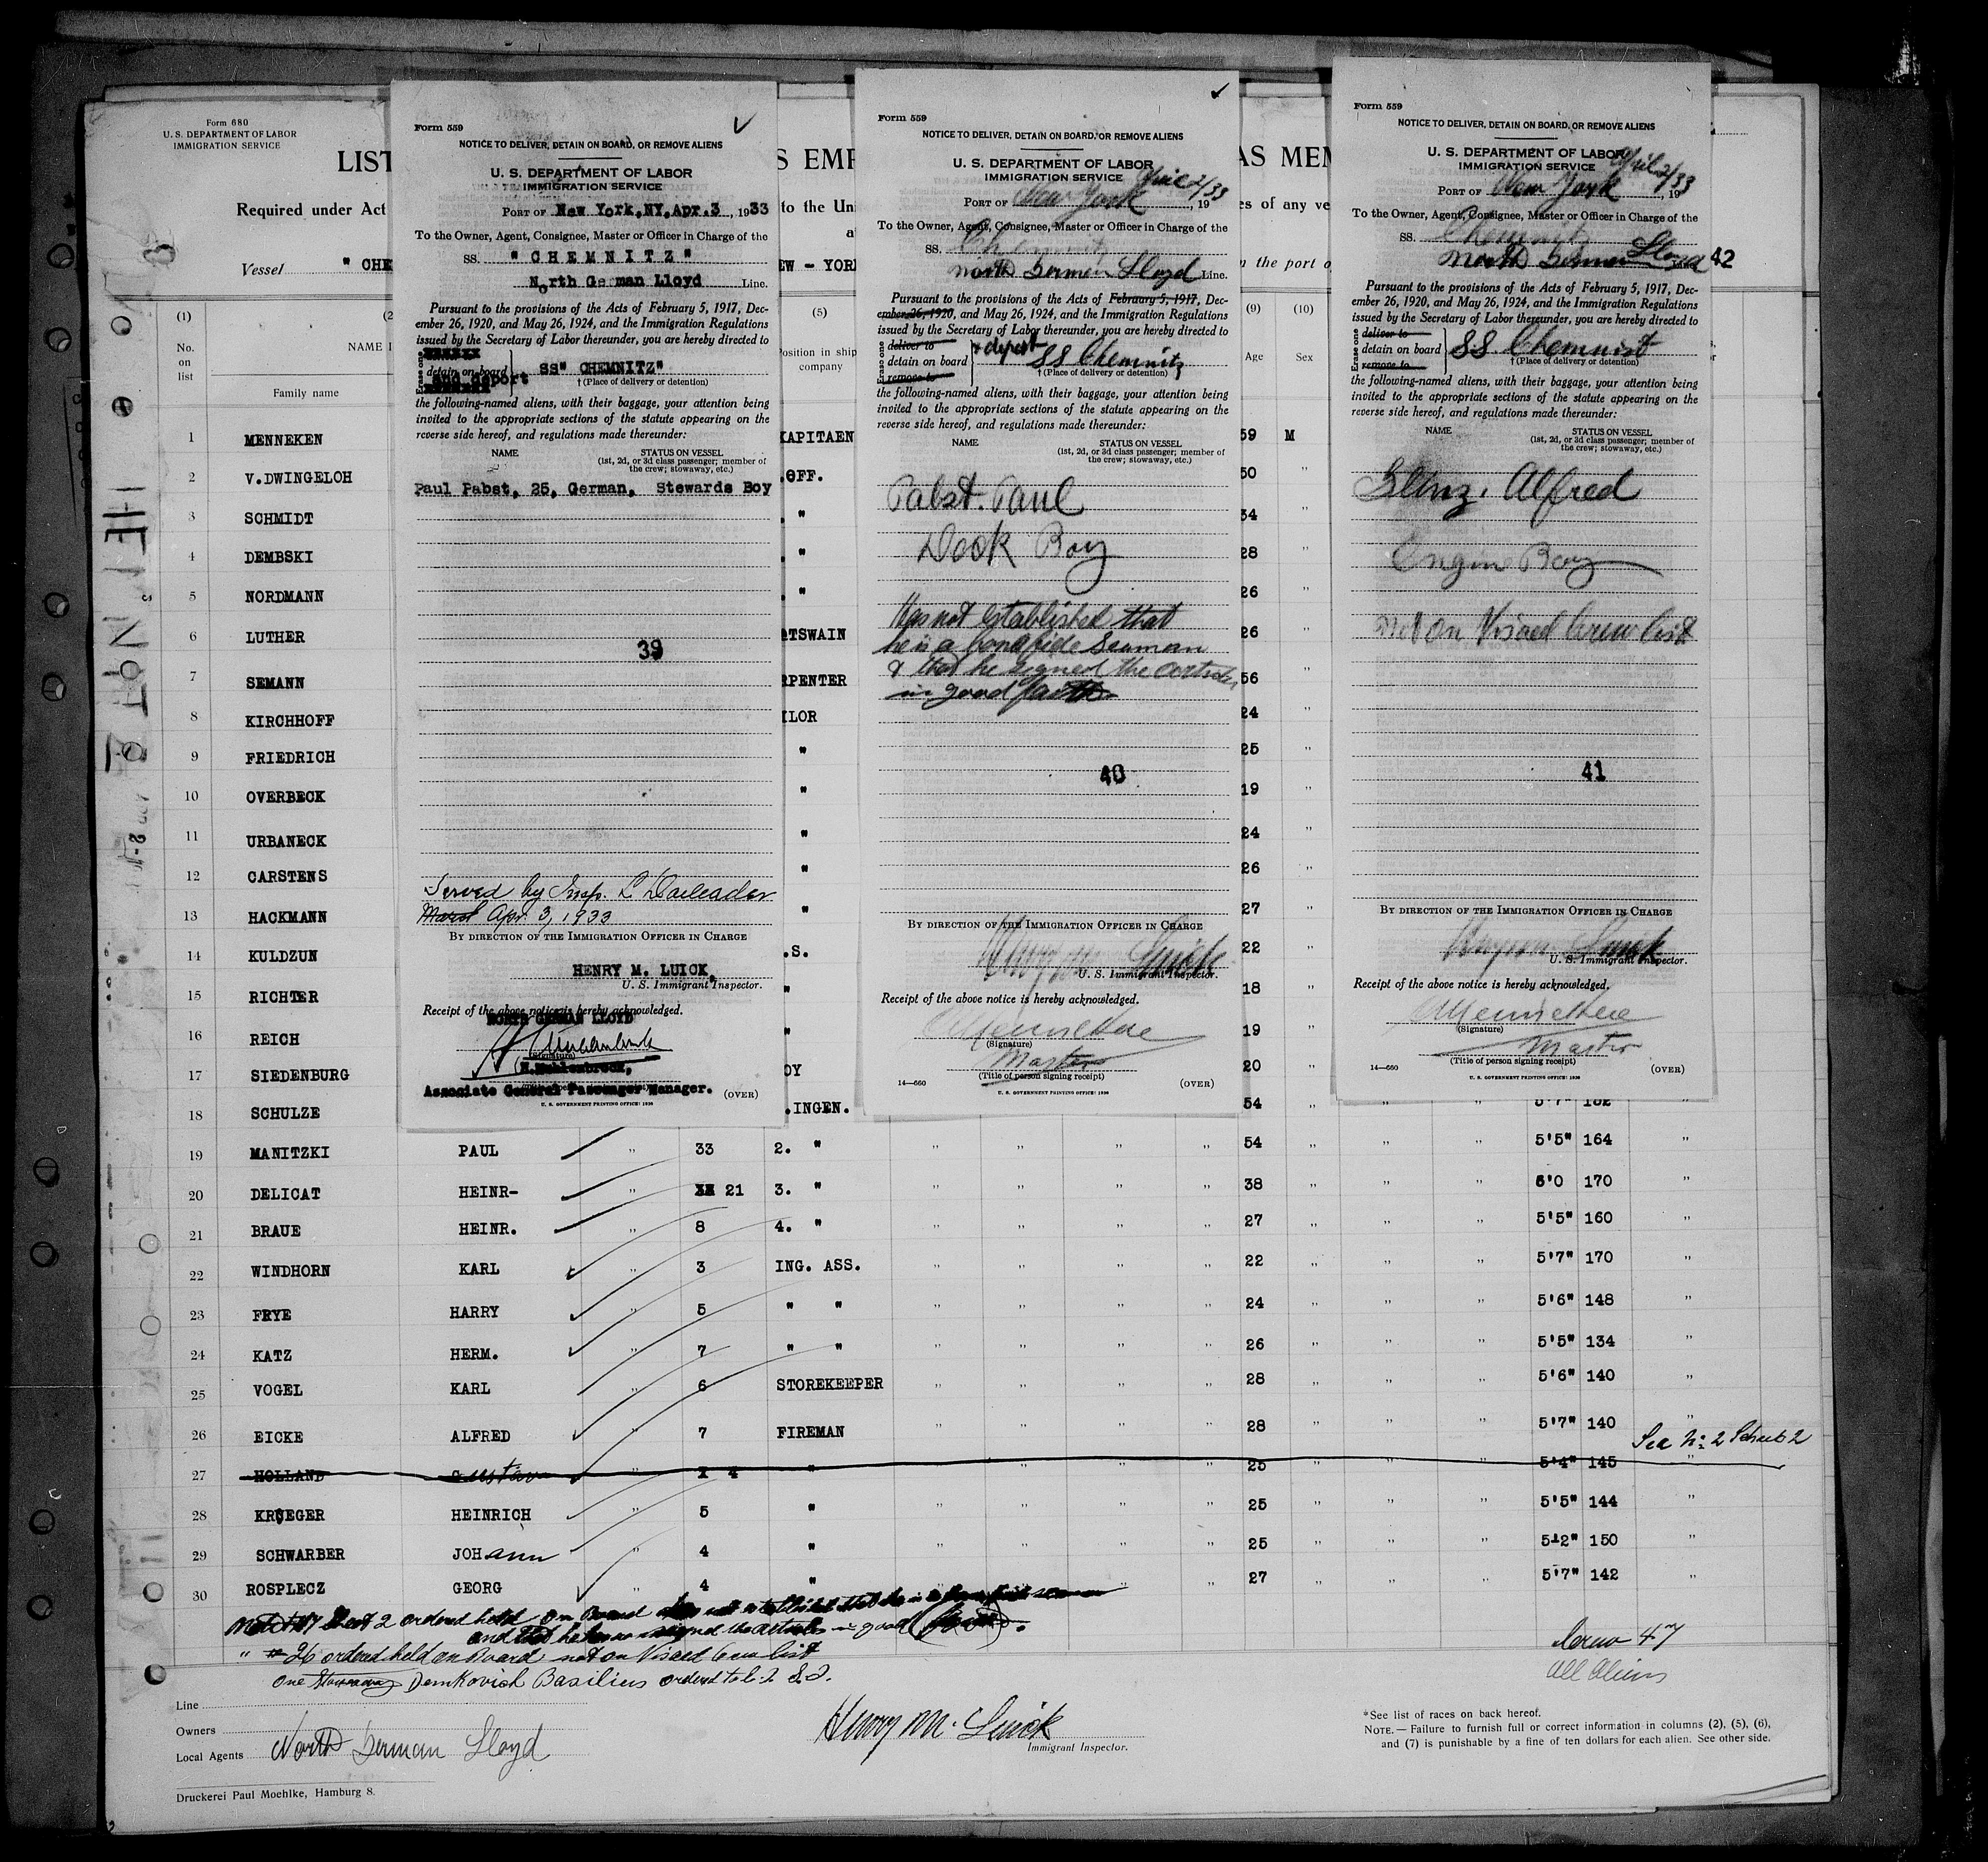 Form 680
U. S. DEPARTMENT OF LABOR
IMMIGRATION SERVICE
LIST
S EMP
AS MEM
Required under Act
to the Uni
es of any ve
Vessel " CHE
EW - YORK
n the port o
42
Form 559
NOTICE TO DELIVER, DETAIN ON BOARD, OR REMOVE ALIENS
U. S. DEPARTMENT OF LABOR
IMMIGRATION SERVICE
PORT OF New York, NY, Apr. 3, 1933
To the Owner, Agent, Consignee, Master or Officer in Charge of the
SS. " C H E M N I T Z "
North German Lloyd Line.
Pursuant to the provisions of the Acts of February 5, 1917, Dec-
ember 26, 1920, and May 26, 1924, and the Immigration Regulations
issued by the Secretary of Labor thereunder, you are hereby directed to
Erase one
detain on board
and deport
SS" CHEMNITZ"
†(Place of delivery or detention)
the following-named aliens, with their baggage, your attention being
invited to the appropriate sections of the statute appearing on the
reverse side hereof, and regulations made thereunder:
NAME
STATUS ON VESSEL
(1st, 2d, or 3d class passenger; member of
the crew; stowaway, etc.)
Paul Pabst, 25, German, Stewards Boy
39
Served by Insp. L
March Apr. 3, 1933
BY DIRECTION OF THE IMMIGRATION OFFICER IN CHARGE
HENRY M. LUICK,
U. S. Immigrant Inspector.
Receipt of the above notice is hereby acknowledged.
NORTH GERMAN LLOYD
(Signature)
H. Muhlenbrock,
Associate General Passenger Manager.
(OVER)
U. S. GOVERNMENT PRINTING OFFICE: 1930
Form 559
NOTICE TO DELIVER, DETAIN ON BOARD, OR REMOVE ALIENS
U. S. DEPARTMENT OF LABOR
IMMIGRATION SERVICE
PORT OF New York April 2/33, 19
To the Owner, Agent, Consignee, Master or Officer in Charge of the
SS. Chemnitz
North German Lloyd Line.
Pursuant to the provisions of the Acts of February 5, 1917, Dec-
ember 26, 1920, and May 26, 1924, and the Immigration Regulations
issued by the Secretary of Labor thereunder, you are hereby directed to
Erase one
deliver to
detain on board & deport
remove to
SS Chemnitz
†(Place of delivery or detention)
the following-named aliens, with their baggage, your attention being
invited to the appropriate sections of the statute appearing on the
reverse side hereof, and regulations made thereunder:
NAME
STATUS ON VESSEL
(1st, 2d, or 3d class passenger; member of
the crew; stowaway, etc.)
Pabst. Paul
Deck Boy
Has not established that
he is a bonafide seaman
& that he signed the articles
in good faith
40
BY DIRECTION OF THE IMMIGRATION OFFICER IN CHARGE
Henry M. Luick
U. S. Immigrant Inspector.
Receipt of the above notice is hereby acknowledged.
(Signature)
Master
(Title of person signing receipt)
14—660
(OVER)
U. S. GOVERNMENT PRINTING OFFICE: 1930
Form 559
NOTICE TO DELIVER, DETAIN ON BOARD, OR REMOVE ALIENS
U. S. DEPARTMENT OF LABOR
IMMIGRATION SERVICE
PORT OF New York April 2/33, 19
To the Owner, Agent, Consignee, Master or Officer in Charge of the
SS. Chemnitz
North German Lloyd
Pursuant to the provisions of the Acts of February 5, 1917, Dec-
ember 26, 1920, and May 26, 1924, and the Immigration Regulations
issued by the Secretary of Labor thereunder, you are hereby directed to
Erase one
deliver to
detain on board
remove to
SS. Chemnist
†(Place of delivery or detention)
the following-named aliens, with their baggage, your attention being
invited to the appropriate sections of the statute appearing on the
reverse side hereof, and regulations made thereunder:
NAME
STATUS ON VESSEL
(1st, 2d, or 3d class passenger; member of
the crew; stowaway, etc.)
Alfred
Engin Boy
Not on Visaed Crew list
41
BY DIRECTION OF THE IMMIGRATION OFFICER IN CHARGE
Henry M Luick
U. S. Immigrant Inspector.
Receipt of the above notice is hereby acknowledged.
(Signature)
Master
(Title of person signing receipt)
14—660
(OVER)
U. S. GOVERNMENT PRINTING OFFICE: 1930
(1) (5) (9) (10)
No. on list
NAME I
Family name
Position in ship
company
Age
Sex
1 MENNEKEN KAPITAEN 59 M
2 V.DWINGELOH .OFF. 50 "
3 SCHMIDT " 34 "
4 DEMBSKI " 28 "
5 NORDMANN " 26 "
6 LUTHER OTSWAIN 26 "
7 SEMANN RPENTER 56 "
8 KIRCHHOFF ILOR 24 "
9 FRIEDRICH " 25 "
10 OVERBECK " 19 "
11 URBANECK " 24 "
12 CARSTENS " 26 "
13 HACKMANN " 27 "
14 KULDZUN .S. 22 "
15 RICHTER " 18 "
16 REICH " 19 "
17 SIEDENBURG OY 20 "
18 SCHULZE .INGEN. 54 " " " 5'7" 182 "
19 MANITZKI PAUL " 33 2. " " " " " 54 " " " 5'5" 164 "
20 DELICAT HEINR- " 21 3. " " " " " 38 " " " 6'0 170 "
21 BRAUE HEINR. " 8 4. " " " " " 27 " " " 5'5" 160 "
22 WINDHORN KARL " 3 ING. ASS. " " " " 22 " " " 5'7" 170 "
23 FRYE HARRY " 5 " " " " " " 24 " " " 5'6" 148 "
24 KATZ HERM. " 7 " " " " " " 26 " " " 5'5" 134 "
25 VOGEL KARL " 6 STOREKEEPER " " " " 28 " " " 5'6" 140 "
26 EICKE ALFRED " 7 FIREMAN " " " " 28 " " " 5'7" 140 "
See No 2 Scheet 2
27 HOLLAND Gustav " 4 " " " " " 25 " " " 5'4" 145 "
28 KRUEGER HEINRICH " 5 " " " " " 25 " " " 5'5" 144 "
29 SCHWARBER JOHann " 4 " " " " " 25 " " " 5-2" 150 "
30 ROSPLECZ GEORG " 4 " " " " " 27 " " " 5'7" 142 "
Sheet 2 ordered held on Board has not established that he is a bona fide seaman
and that he signed the articles in good faith.
" # 26 ordered held on Board not on Visaed Crew list
One Stowaway Demkovich Basilius ordered to
Crew 47
All Aliens
Line
Owners
Local Agents North German Lloyd
Henry M. Luick
Immigrant Inspector.
*See list of races on back hereof.
NOTE.—Failure to furnish full or correct information in columns (2), (5), (6),
and (7) is punishable by a fine of ten dollars for each alien. See other side.
Druckerei Paul Moehlke, Hamburg 8.